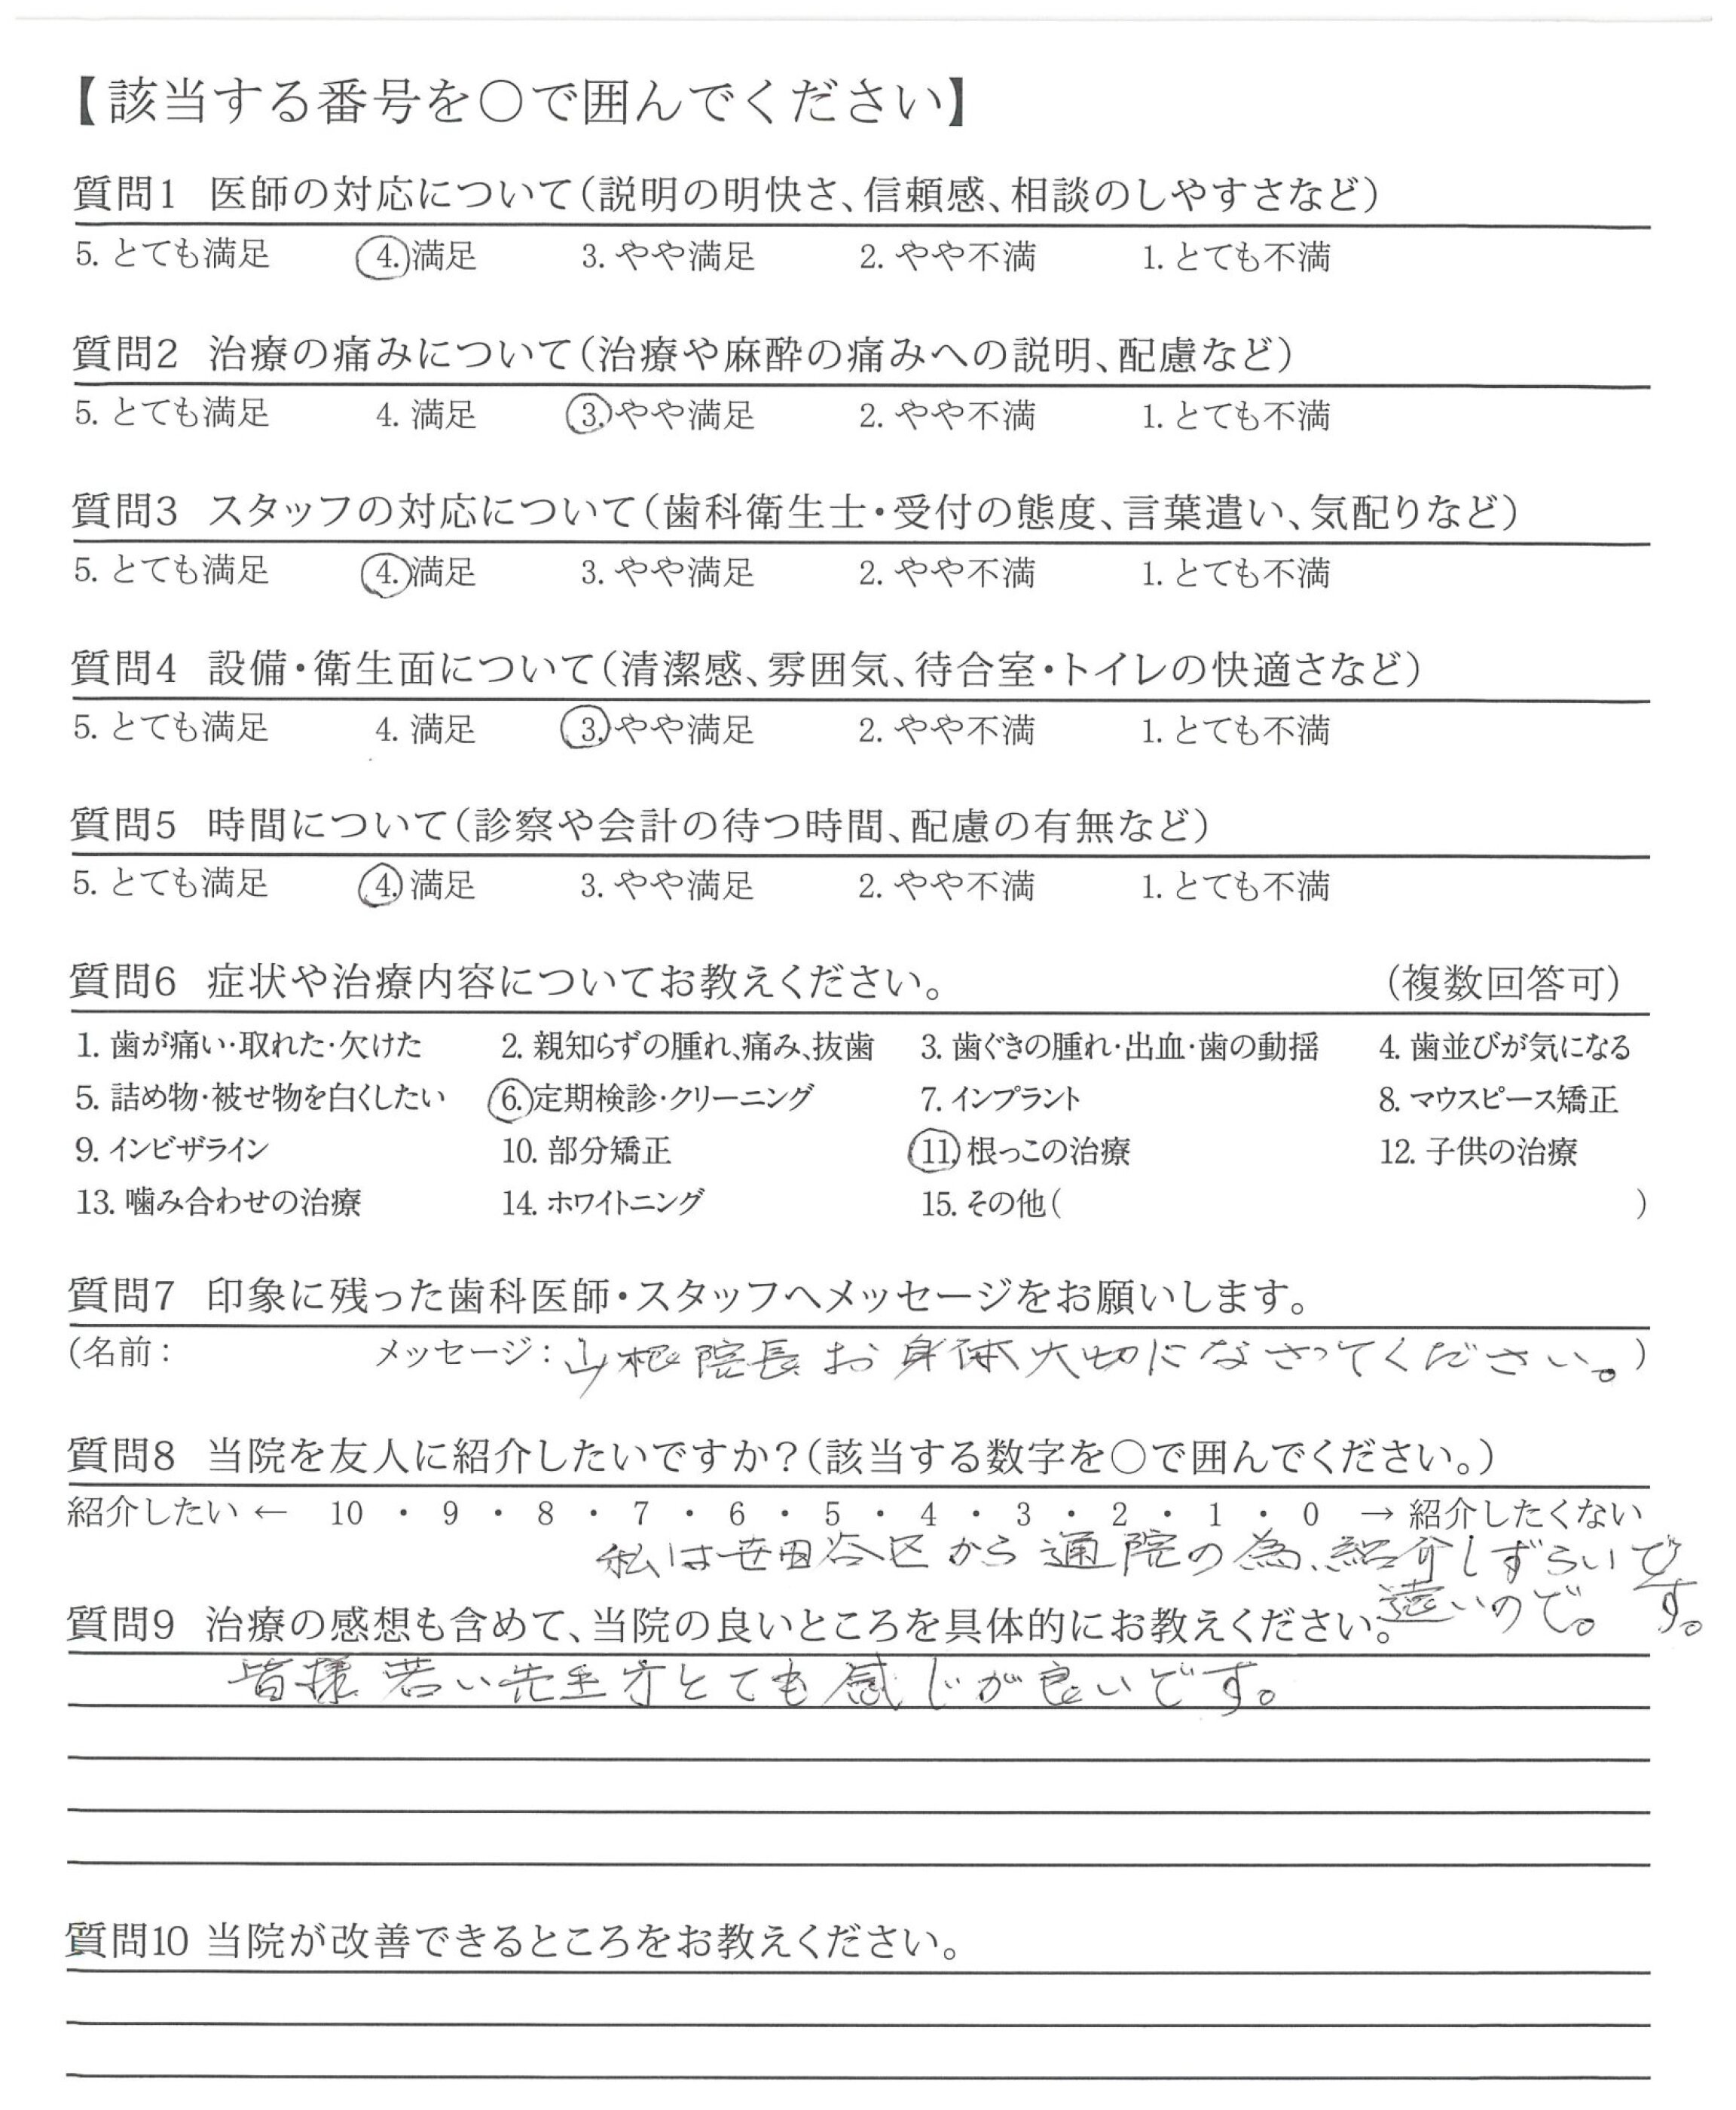 【該当する番号を○で囲んでください】
質問1 医師の対応について（説明の明快さ、信頼感、相談のしやすさなど）
5. とても満足 4. 満足 3. やや満足 2. やや不満 1. とても不満
質問2 治療の痛みについて（治療や麻酔の痛みへの説明、配慮など）
5. とても満足 4. 満足 3. やや満足 2. やや不満 1. とても不満
質問3 スタッフの対応について（歯科衛生士・受付の態度、言葉遣い、気配りなど）
5. とても満足 4. 満足 3. やや満足 2. やや不満 1. とても不満
質問4 設備・衛生面について（清潔感、雰囲気、待合室・トイレの快適さなど）
5. とても満足 4. 満足 3. やや満足 2. やや不満 1. とても不満
質問5 時間について（診察や会計の待つ時間、配慮の有無など）
5. とても満足 4. 満足 3. やや満足 2. やや不満 1. とても不満
質問6 症状や治療内容についてお教えください。 （複数回答可）
1. 歯が痛い・取れた・欠けた 2. 親知らずの腫れ、痛み、抜歯 3. 歯ぐきの腫れ・出血・歯の動揺 4. 歯並びが気になる
5. 詰め物・被せ物を白くしたい 6. 定期検診・クリーニング 7. インプラント 8. マウスピース矯正
9. インビザライン 10. 部分矯正 11. 根っこの治療 12. 子供の治療
13. 噛み合わせの治療 14. ホワイトニング 15. その他（ ）
質問7 印象に残った歯科医師・スタッフへメッセージをお願いします。
（名前： メッセージ：山根院長お身体大切になさってください。）
質問8 当院を友人に紹介したいですか？（該当する数字を○で囲んでください。）
紹介したい ← 10 ・ 9 ・ 8 ・ 7 ・ 6 ・ 5 ・ 4 ・ 3 ・ 2 ・ 1 ・ 0 → 紹介したくない
私は世田谷区から通院の為、紹介しずらいで
す。
遠いので。
質問9 治療の感想も含めて、当院の良いところを具体的にお教えください。
皆様若い先生方とても感じが良いです。
質問10 当院が改善できるところをお教えください。